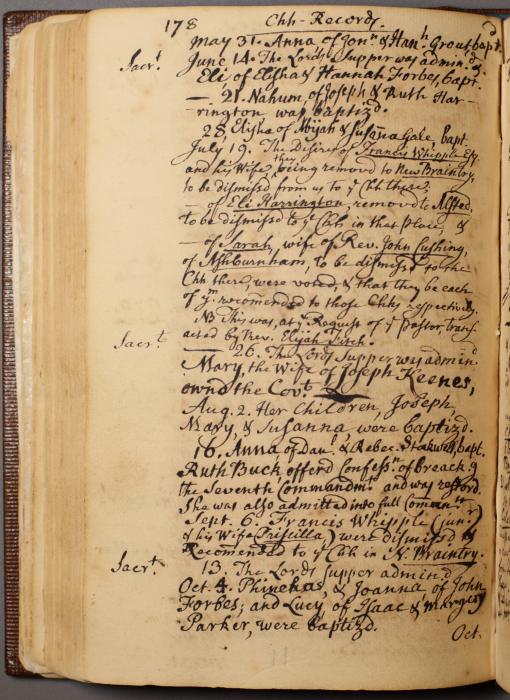 178 Chh-Records.
May 31. Anna, of Jonn. & Hanh. Grout, bapt.
Sacrt. June 14. The Lord's Supper was admind. &
Eli, of Elisha & Hannah Forbes, bapt.
— 21. Nahum, of Joseph & Ruth Har-
rington was baptizd.
28 Elisha of Abijah & Susana Gale, bapt.
July 19. The Desires of Francis Whipple Esq.
and his Wife, they being removed to New Braintry,
to be dismissd from us to ye Chh there;
— of Eli Harrington, removd to Alsted,
to be dismissd to ye Chh in that place, &
— of Sarah, wife of Rev. John Cushing,
of Ashburnham, to be dismissd to the
Chh there, were voted, & that they be each
of ym. recomended to those Chhs respectively.
NB This was, at ye Request of ye pastor, trans-
acted by Rev. Elijah Fitch.
Sacrt. — 26. The Lords Supper was admind.
Mary, the Wife of Joseph Keenes,
ownd the Covt.
Aug. 2. Her Children, Joseph,
Mary, & Susanna were baptizd.
16. Anna, of Danl. & Rebec. Stakwel, bapt.
Ruth Buck offerd Confessn. of breach of
the Seventh Commandmt. and was restord.
She was also admitted into full Comunn.
Sept. 6. Francis Whipple (junr.)
& his Wife (Priscilla,) were dismissd &
Recomended to ye Chh in N. Braintry.
Sacrt. 13. The Lords Supper admind.
Oct. 4. Phinehas, & Joanna, of John
Forbes; and Lucy, of Isaac & Margery
Parker, were baptizd.
Oct.